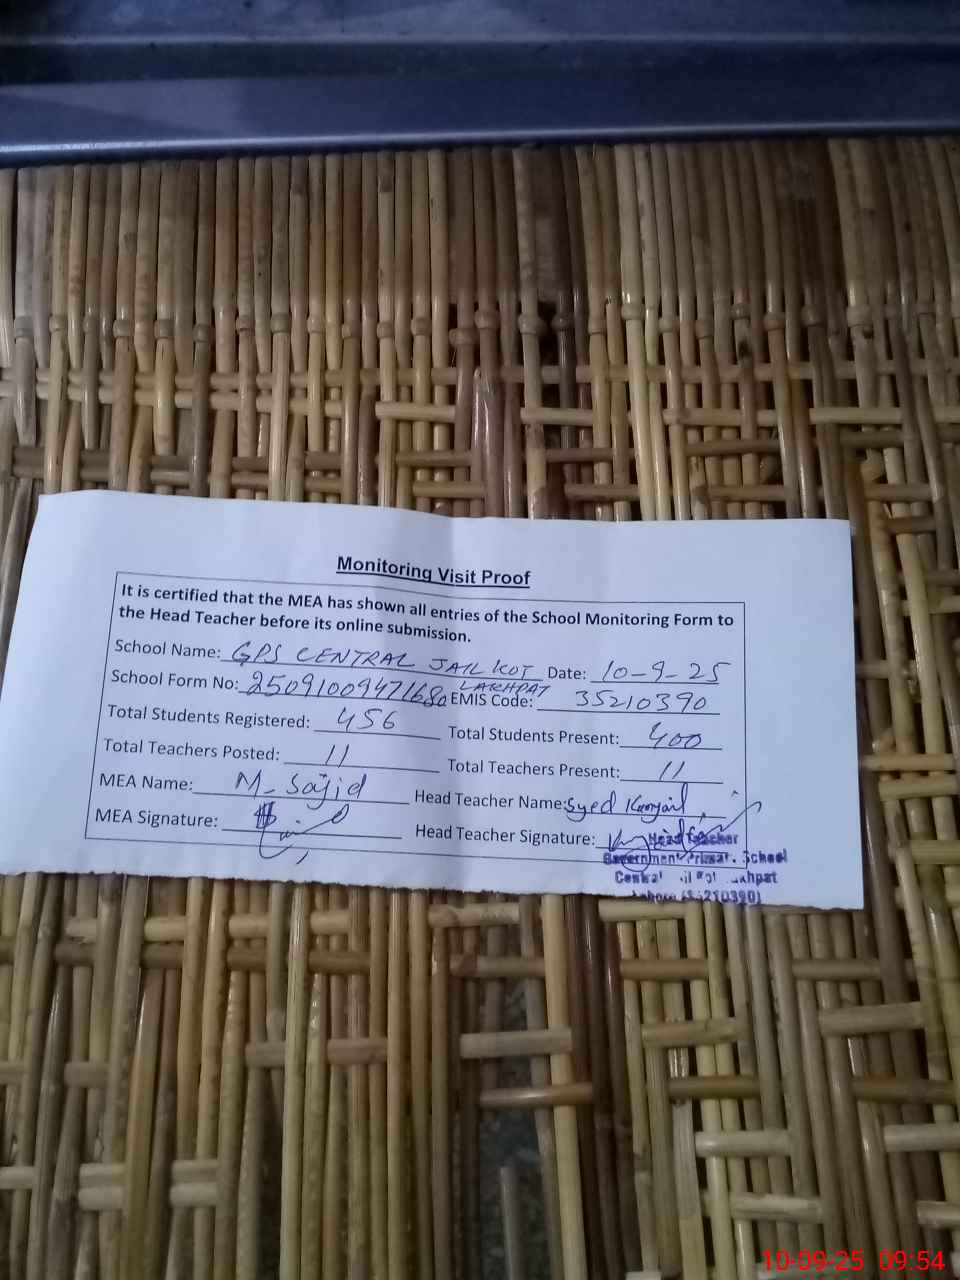 Monitoring Visit Proof
It is certified that the MEA has shown all entries of the School Monitoring Form to
the Head Teacher before its online submission.
School Name: GPS CENTRAL JAIL KOT LAKHPAT Date: 10-9-25
School Form No: 25091009471680 EMIS Code: 35210390
Total Students Registered: 456 Total Students Present: 400
Total Teachers Posted: 11 Total Teachers Present: 11
MEA Name: M. Sajid Head Teacher Name: Syed
MEA Signature: Head Teacher Signature:
Head Teacher
Government Primary School
Central
10-09-25 09:54